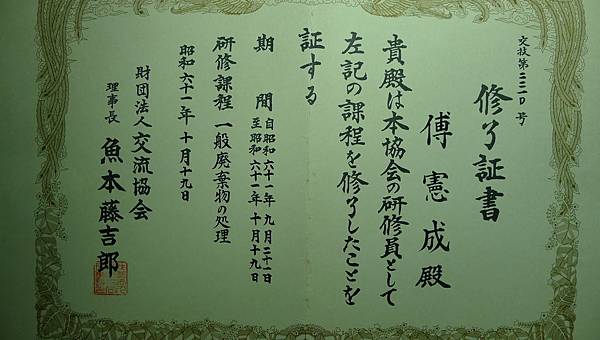 交技第二三一〇号
修了証書
傅憲成殿
貴殿は本協会の研修員として
左記の課程を修了したことを
証する
期間 自昭和六十一年九月二十一日
至昭和六十一年十月十九日
研修課程 一般廃棄物の処理
昭和六十一年十月十九日
財団法人交流協会
理事長 魚本藤吉郎